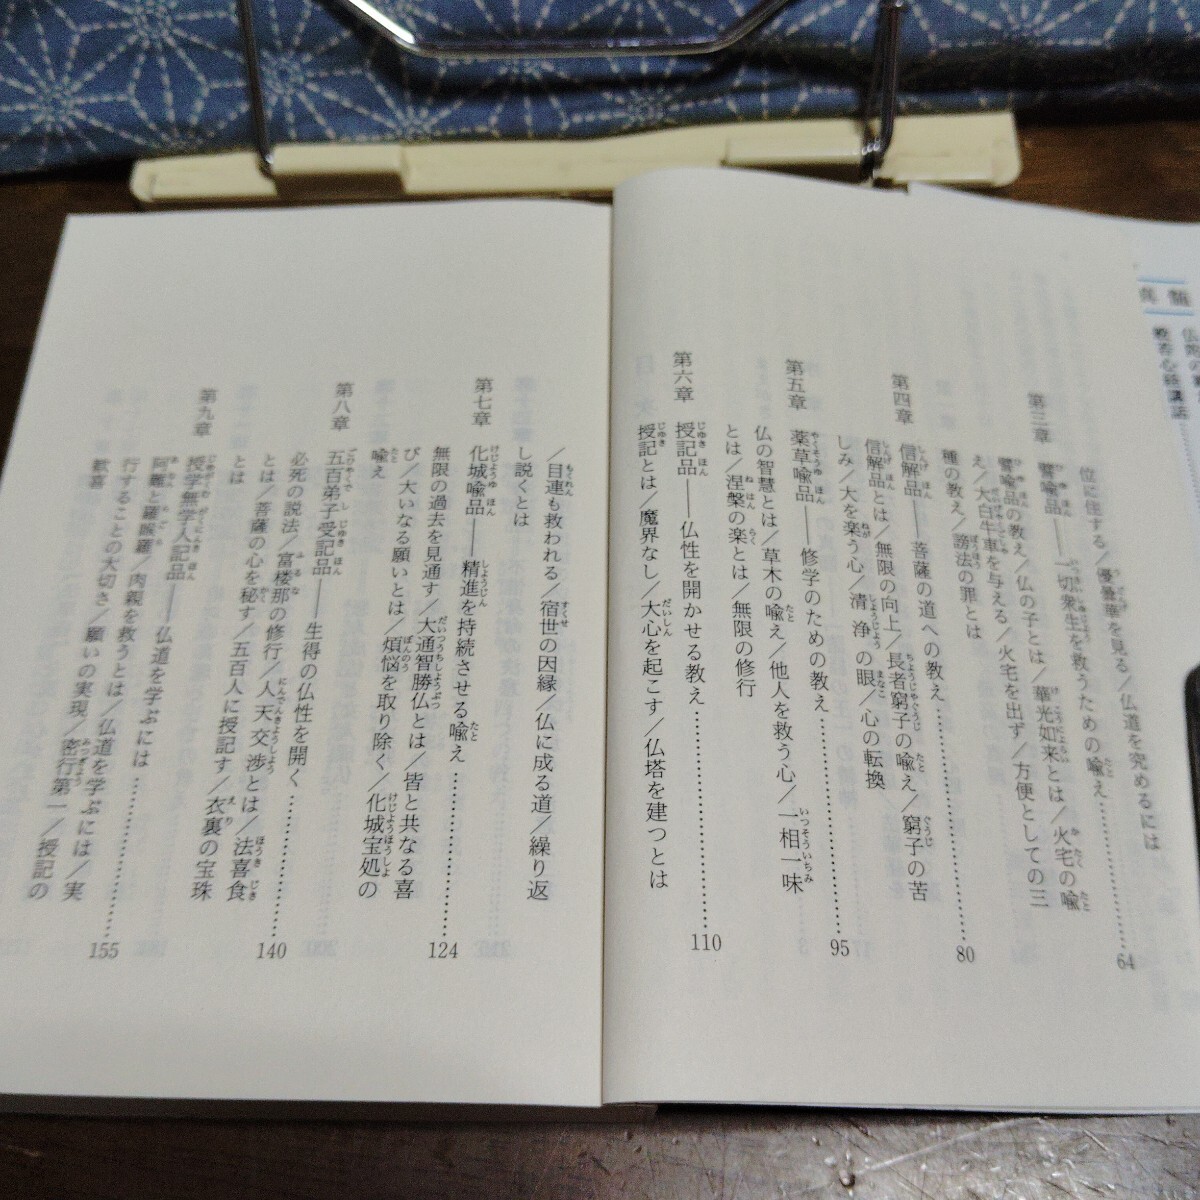 位に住する／優曇華を見る／仏道を究めるには
第三章　譬喩品――一切衆生を救うための喩え……………64
譬喩品の教え／仏の子とは／華光如来とは／火宅の喩
え／大白牛車を与える／火宅を出ず／方便としての三
種の教え／謗法の罪とは
第四章　信解品――菩薩の道への教え……………80
信解品とは／無限の向上／長者窮子の喩え／窮子の苦
しみ／大を楽う心／清浄の眼／心の転換
第五章　薬草喩品――修学のための教え……………95
仏の智慧とは／草木の喩え／他人を救う心／一相一味
とは／涅槃の楽とは／無限の修行
第六章　授記品――仏性を開かせる教え……………110
授記とは／魔界なし／大心を起こす／仏塔を建つとは
／目連も救われる／宿世の因縁／仏に成る道／繰り返
し説くとは
第七章　化城喩品――精進を持続させる喩え……………124
無限の過去を見通す／大通智勝仏とは／皆と共なる喜
び／大いなる願いとは／煩悩を取り除く／化城宝処の
喩え
第八章　五百弟子受記品――生得の仏性を開く……………140
必死の説法／富楼那の修行／人天交渉とは／法喜食
とは／菩薩の心を秘す／五百人に授記す／衣裏の宝珠
とは
第九章　授学無学人記品――仏道を学ぶには……………155
阿難と羅睺羅／肉親を救うとは／仏道を学ぶには／実
行することの大切さ／願いの実現／密行第一／授記の
歓喜
般若心経講話